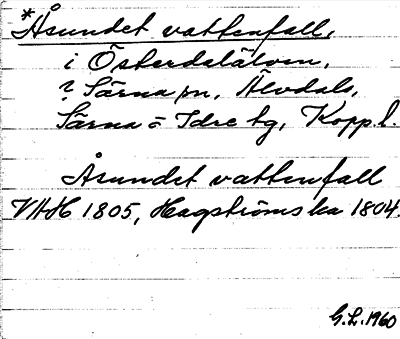 *Åsundet vattenfall,
i Österdalälven,
? Särna sn, Älvdals,
Särna o Idre tg, Kopp. l.
Åsundet vattenfall
VHAH 1805, Hagströms ka 1804.
G.L. 1960